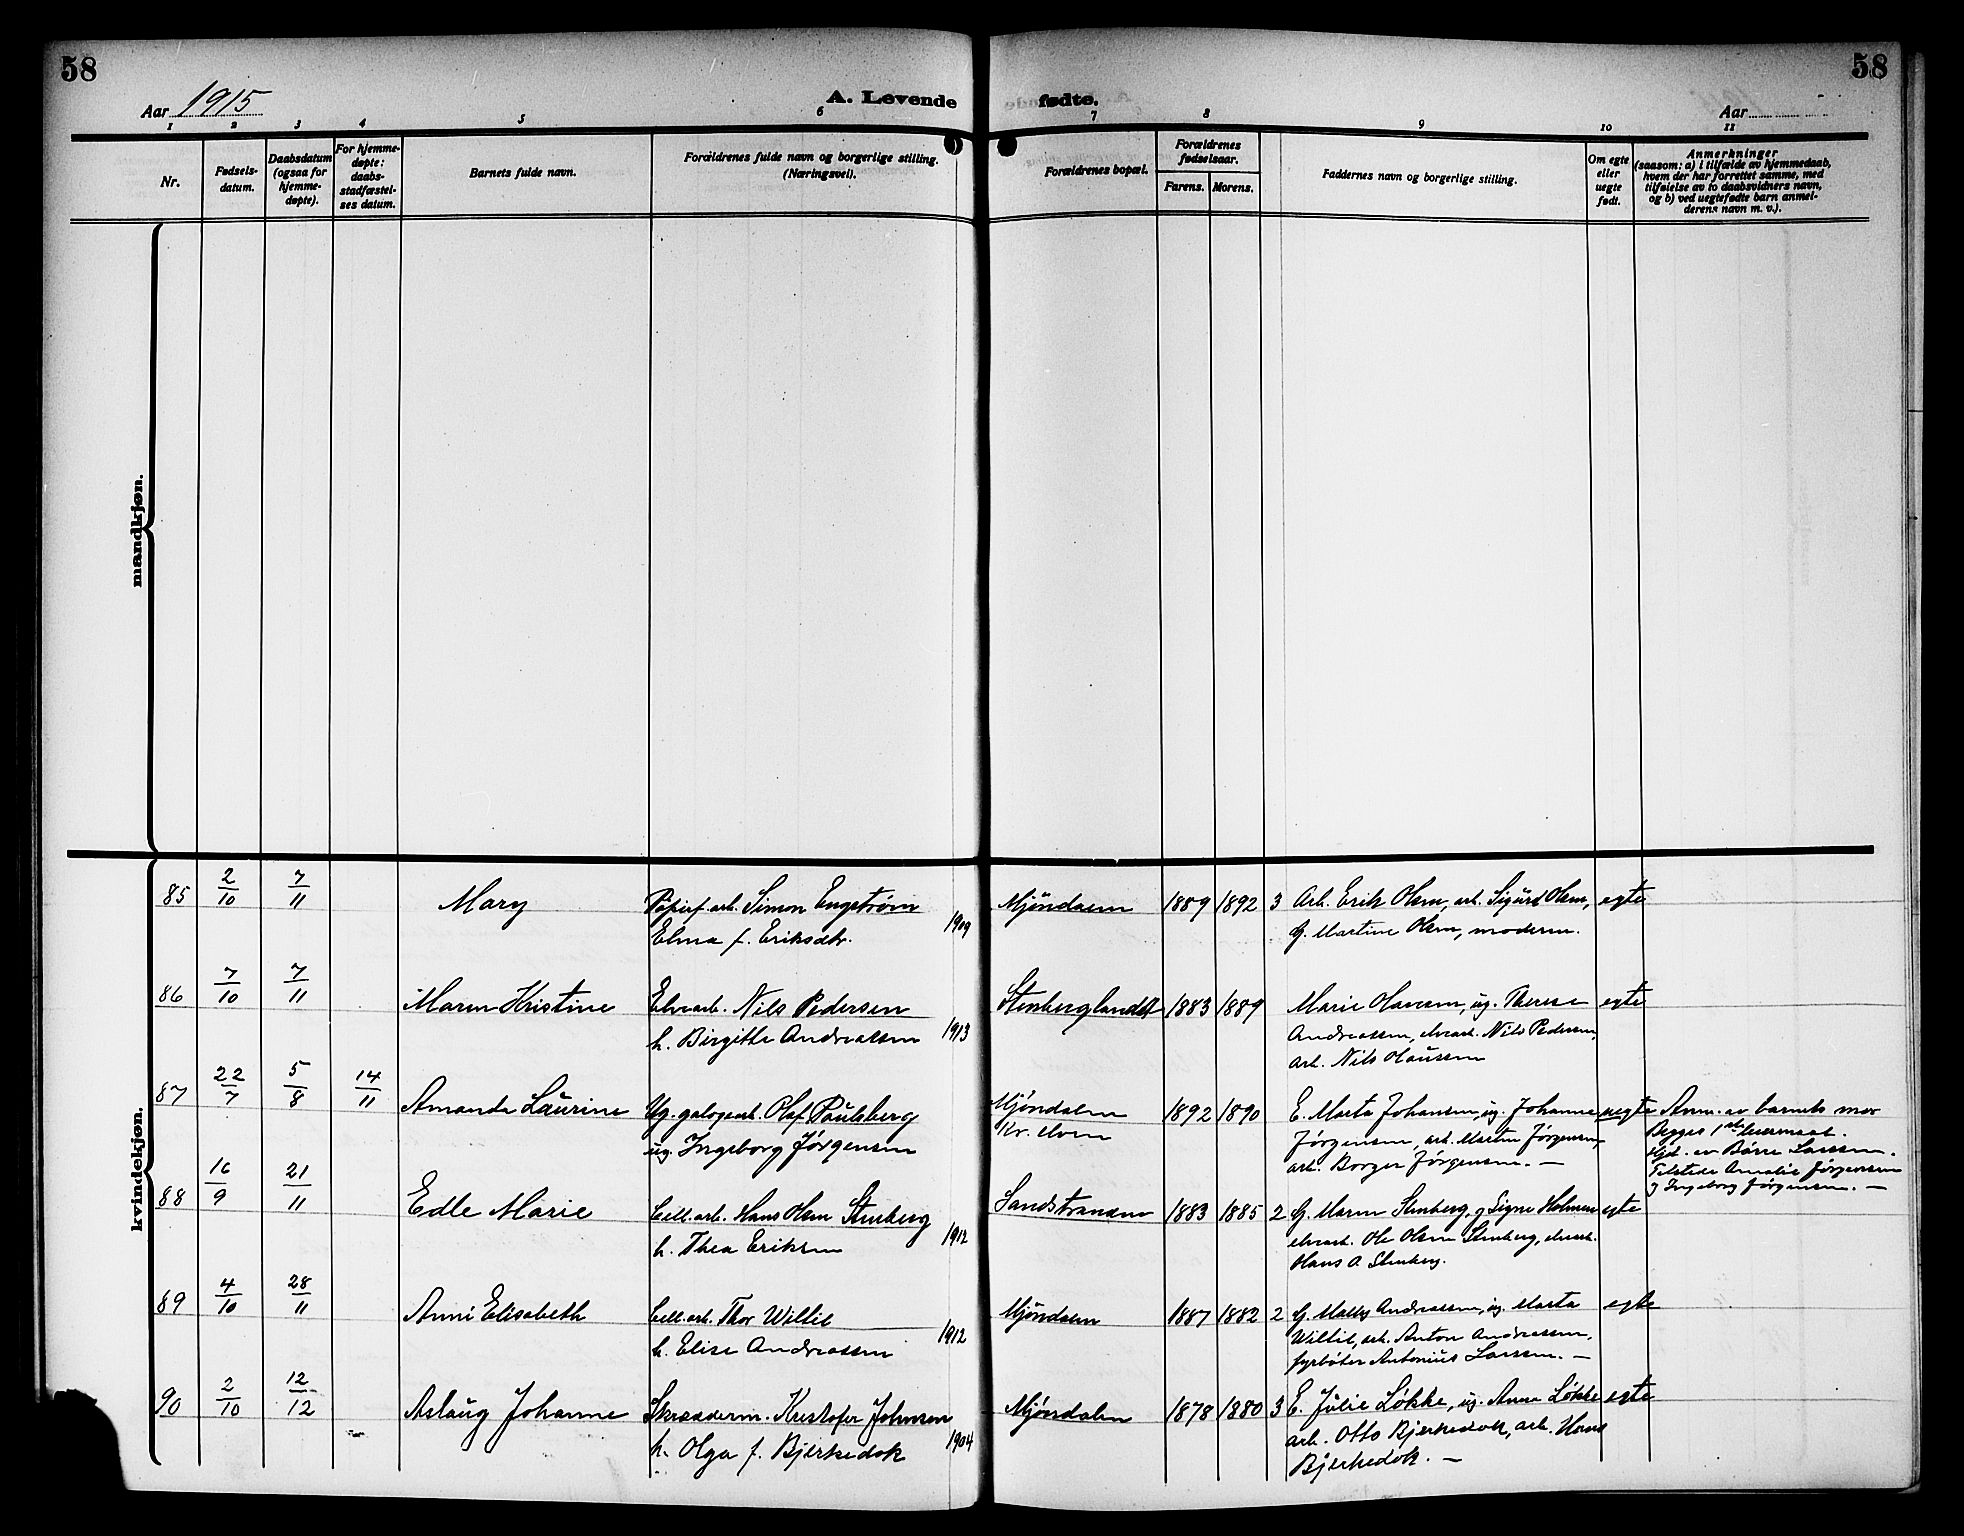 58
58
Aar 1915
A. Levende
fødte.
Aar
1
2
3
4
5
6
7
8
9
10
11
Nr.
Fødsels-
datum.
Daabsdatum
(ogsaa for
hjemme-
døpte).
For hjemme-
døpte:
daabs-
stadfæstel-
ses datum.
Barnets fulde navn.
Forældrenes fulde navn og borgerlige stilling.
(Næringsvei).
Forældrenes bopæl.
Forældrenes
fødselsaar.
Farens.
Morens.
Faddernes navn og borgerlige stilling.
Om egte
eller
uegte
født.
Anmerkninger
(saasom: a) i tilfælde av hjemmedaab,
hvem der har forrettet samme, med
tilføielse av to daabsvidners navn,
og b) ved uegtefødte barn anmel-
derens navn m. v.).
mandkjøn.
kvindekjøn.
85 2/10 7/11 Mary
Papirf. arb. Simon Engstrøm
Elma f. Eriksdtr. 1909
Mjöndalen 1889 1892 3
Arb. Erik Olsen, arb. Sigurd Olsen,
G. Martine Olsen, moderen.
egte
86 7/10 7/11 Maren Kristine
Elvearb. Nils Pedersen
h. Birgitte Andreassen 1913
Stenberglandet 1883 1889
Marie Olavesen, ug. Therese
Andreassen, elvearb. Nils Pedersen,
arb. Nils Olaussen
egte
87 22/7 5/8 14/11 Amanda Laurine
Ug. galogearb. Olaf Paulsberg
ug. Ingeborg Jørgensen
Mjöndalen
Kr. elven
1892 1890
E. Marta Johansen, ug. Johanne
Jørgensen, arb. Martin Jørgensen,
arb. Borger Jørgensen. —
uegte
Anm. av barnets mor
Begges 1ste leiermaal.
Hjd. av Børre Larssen.
Tilstede Amalie Jørgensen
g Ingeborg Jørgensen. —
88 16/9 21/11 Edle Marie
Cell. arb. Hans Olsen Stenberg
h. Thea Eriksen 1912
Sandstranden 1883 1885 2
G. Maren Stenberg, g Signe Holmen
elvearb. Ole Olsen Stenberg, elvearb.
Hans A. Stenberg.
egte
89 4/10 28/11 Anni Elisabeth
Cell. arb. Thor Wiltil
h. Elise Andreassen 1912
Mjöndalen 1887 1882 2
G. Mally Andreassen, ug. Marta
Wiltil, arb. Anton Andreassen,
fyrbøter Antonius Larssen. —
egte
90 2/10 12/12 Aslaug Johanne
Skrædderm. Kristofer Johnsen
h. Olga f. Bjerkedok 1904
Mjöndalen 1878 1880 3
E. Julie Løkke, ug. Anna Løkke
arb. Otto Bjerkedok, arb. Hans
Bjerkedok. —
egte